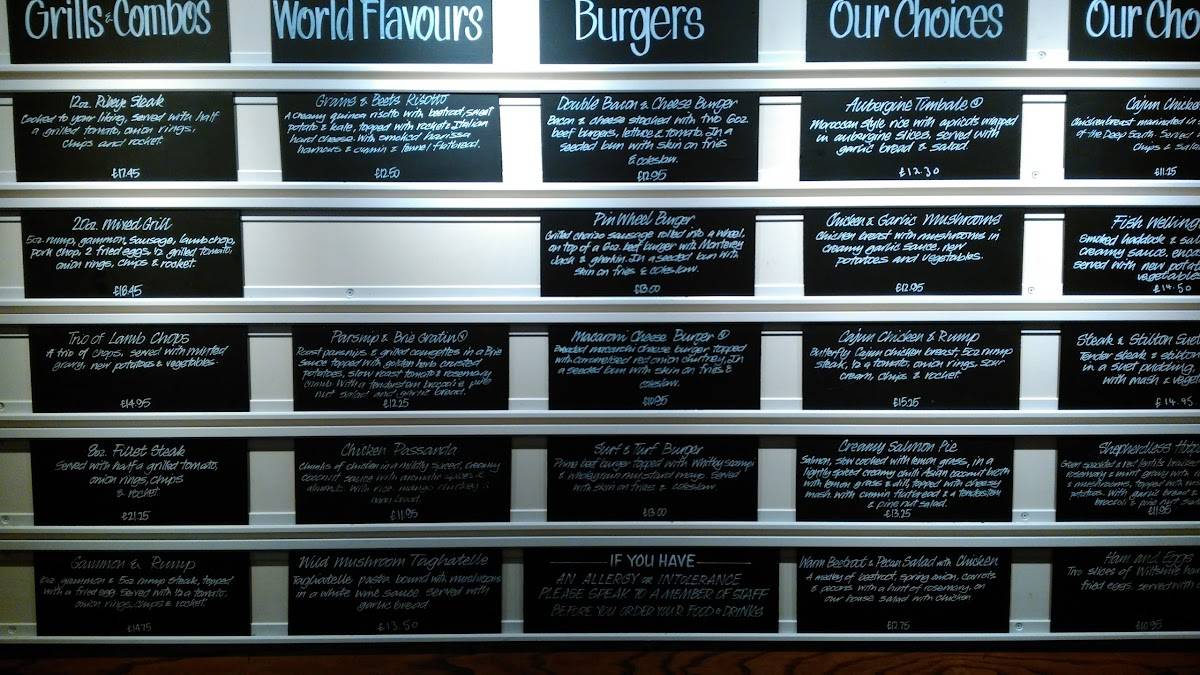 Grills & Combos
12oz. Ribeye Steak
Cooked to your liking, served with half
a grilled tomato, onion rings,
chips and rocket.
£17.45
20oz. Mixed Grill
5oz rump, gammon, sausage, lamb chop,
pork chop, 2 fried eggs, 1/2 grilled tomato,
onion rings, chips & rocket.
£18.45
Trio of Lamb Chops
A trio of chops, served with minted
gravy, new potatoes & vegetables.
£14.95
8oz. Fillet Steak
Served with half a grilled tomato,
onion rings, chips
& rocket.
£21.25
Gammon & Rump
gammon & 5oz rump steak, topped
with a fried egg. Served with 1/2 a tomato,
onion rings, chips & rocket.
£14.75
World Flavours
Grains & Beets Risotto
A creamy quinoa risotto with beetroot, sweet
potato & kale, topped with rocket & Italian
hard cheese. With smoked harissa
houmous & cumin & fennel flatbread.
£12.50
Parsnip & Brie Gratin Ⓥ
Roast parsnips & grilled courgettes in a Brie
sauce topped with golden herb crusted
potatoes, slow roast tomato & rosemary
crumb. With a tenderstem broccoli & pine
nut salad and garlic bread.
£12.25
Chicken Passanda
Chunks of chicken in a mildly spiced, creamy
coconut sauce with aromatic spices &
almonds. With rice, mango chutney &
naan bread.
£11.95
Wild Mushroom Tagliatelle
Tagliatelle pasta bound with mushrooms
in a white wine sauce served with
garlic bread.
£13.50
Burgers
Double Bacon & Cheese Burger
Bacon & cheese stacked with two 6oz
beef burgers, lettuce & tomato. In a
seeded bun with skin on fries
& coleslaw.
£12.95
Pin Wheel Burger
Grilled chorizo sausage rolled into a wheel,
on top of a 6oz beef burger with Monterey
Jack & gherkin. In a seeded bun with
skin on fries & coleslaw.
£13.00
Macaroni Cheese Burger Ⓥ
Breaded macaroni cheese burger topped
with caramelised red onion chutney. In
a seeded bun with skin on fries &
coleslaw.
£10.95
Surf & Turf Burger
Prime beef burger topped with Whitby scampi
& wholegrain mustard mayo. Served
with skin on fries & coleslaw.
£13.00
IF YOU HAVE
AN ALLERGY OR INTOLERANCE
PLEASE SPEAK TO A MEMBER OF STAFF
BEFORE YOU ORDER YOUR FOOD & DRINKS
Our Choices
Aubergine Timbale Ⓥ
Moroccan style rice with apricots wrapped
in aubergine slices, served with
garlic bread & salad.
£12.30
Chicken & Garlic Mushrooms
Chicken breast with mushrooms in
creamy garlic sauce, new
potatoes and vegetables.
£12.95
Cajun Chicken & Rump
Butterfly Cajun chicken breast, 5oz rump
steak, 1/2 a tomato, onion rings, sour
cream, chips & rocket.
£15.25
Creamy Salmon Pie
Salmon, slow cooked with lemon grass, in a
lightly spiced creamy chilli Asian coconut broth
with lemon grass & dill, topped with cheesy
mash with cumin flatbread & a tenderstem
& pine nut salad.
£13.25
Warm Beetroot & Pecan Salad with Chicken
A medley of beetroot, spring onion, carrots
& pecans with a hint of rosemary, on
our house salad with chicken.
£12.75
Our Cho
Cajun Chicke
Chicken breast marinated in s
of the Deep South. Served
chips & sala
£11.25
Fish Welling
Smoked haddock & sa
creamy sauce, enca
served with new potat
vegetables
£14.50
Steak & Stilton Suet
Tender steak & stilton
in a suet pudding,
with mash & veget
£14.95
Shepherdless Hotp
Green & red lentils
rosemary & mint gravy with
& mushrooms, topped with
potatoes. With garlic bread &
broccoli & pine nut sa
£11.95
Ham and Eggs
Two slices of Wiltshire ham
fried eggs, served with
£10.95